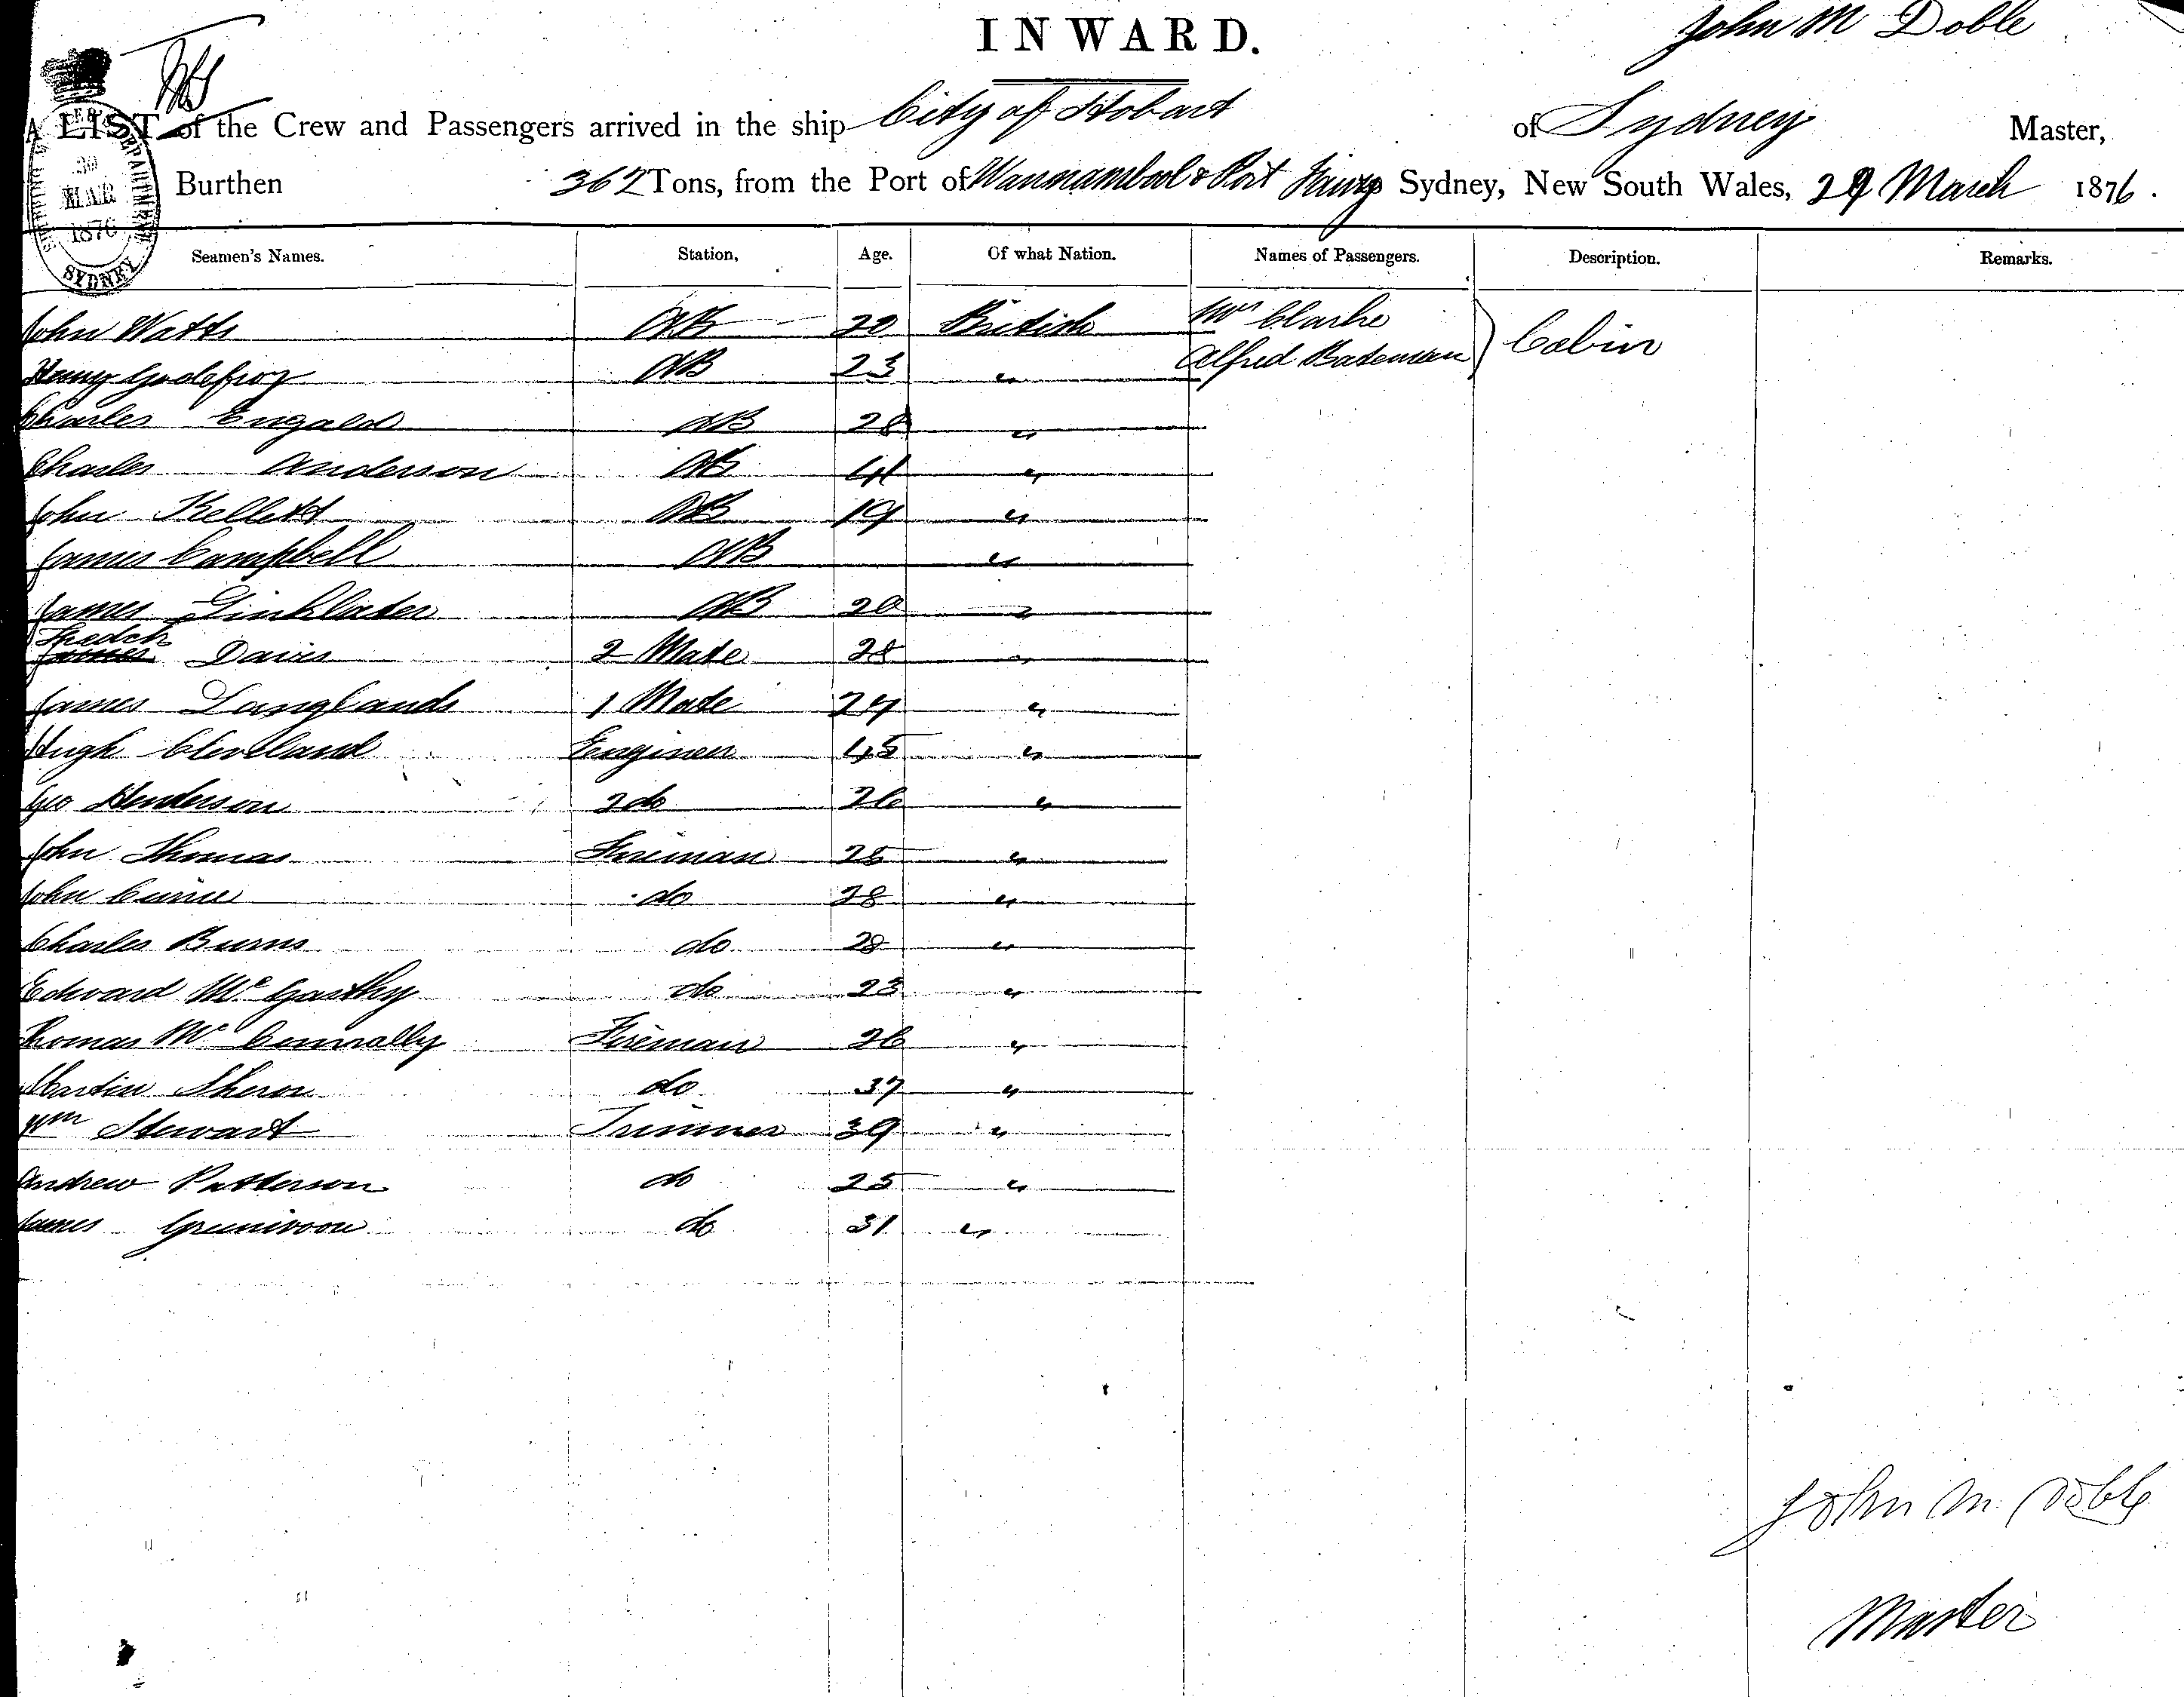 INWARD.
John M Doble
A LIST of the Crew and Passengers arrived in the ship City of Hobart of Sydney Master,
Burthen 362 Tons, from the Port of Warrnambool & Port Sydney, New South Wales, 29 March 1876.
30
MAR
1876
SYDNEY
Seamen's Names. Station, Age. Of what Nation. Names of Passengers. Description. Remarks.
John Watts AB 20 British Mrs Clarke
Henry Godefroy AB 23 " Alfred Bateman } Cabin
Charles AB 28 "
Charles Anderson AB 41 "
John Kellett AB 19 "
James Campbell AB "
James Linklater AB 20 "
Davies 2 Mate 28 "
James Langlands 1 Mate 24 "
Hugh Engineer 45 "
Geo Henderson 2 do 26 "
John Thomas Fireman 25 "
John Currie do 28 "
Charles Burns do 28 "
Edward Mc Garthy do 23 "
Thomas Mc Connally Fireman 26 "
Martin do 37 "
Wm Stewart Trimmer 39 "
Andrew Patterson do 25 "
James do 31 "
John M. Doble
Master